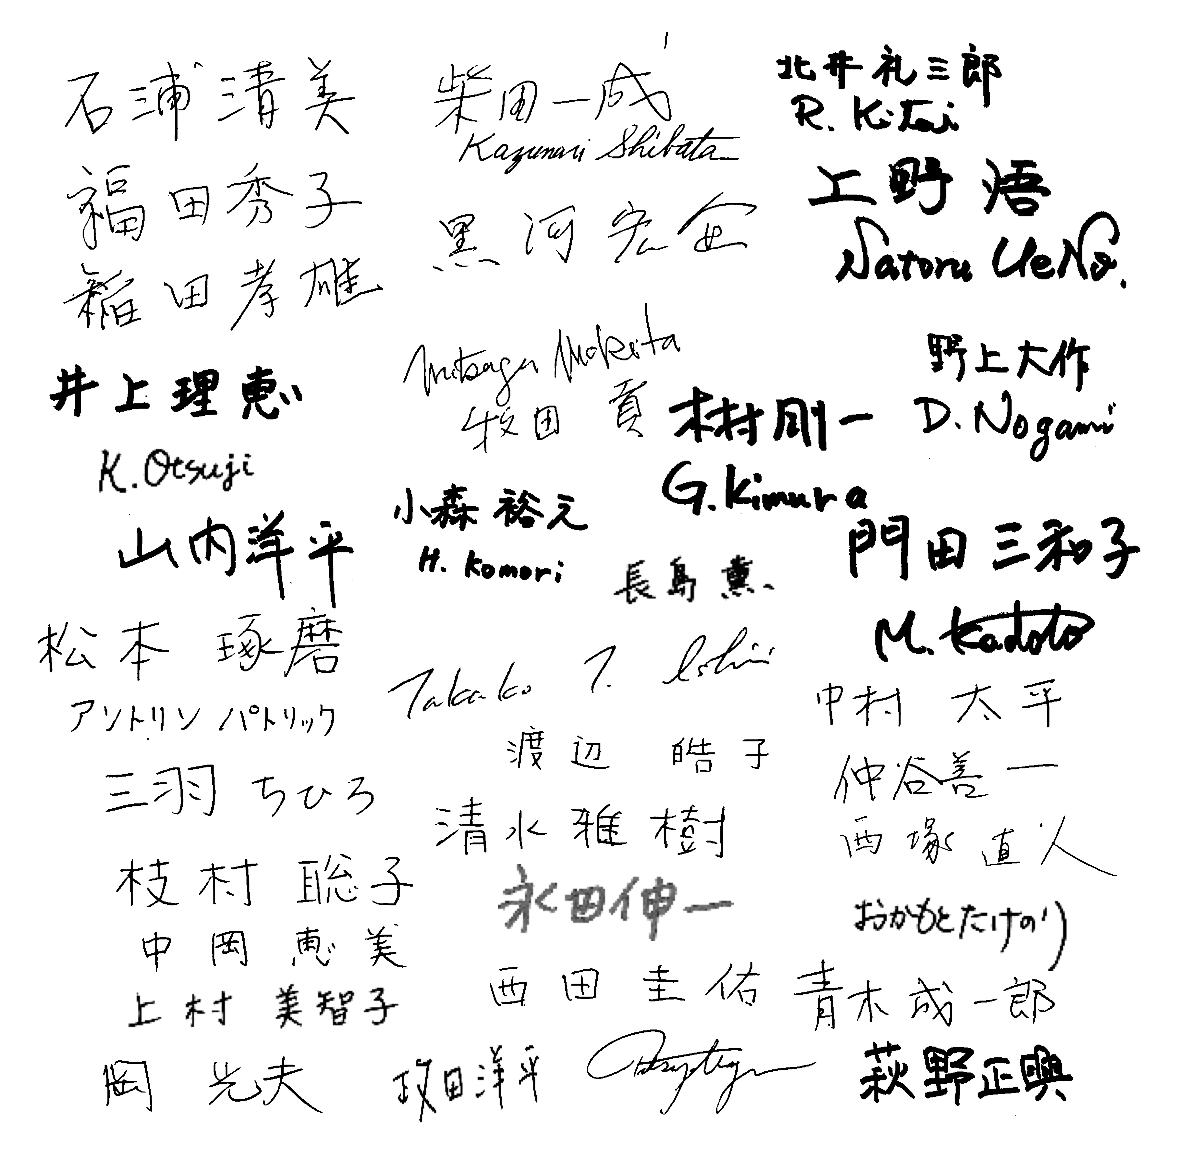 石浦清美
福田秀子
稲田孝雄
井上理恵
K. Otsuji
山内洋平
松本 琢磨
アントリン パトリック
三羽 ちひろ
枝村 聡子
中岡恵美
上村 美智子
岡 光夫
柴田一成
Kazunari Shibata
黒河宏企
Mitsugu Makita
牧田 貢
小森裕元
H. Komori
長島薫
Takako T. Ishii
渡辺 皓子
清水雅樹
永田伸一
西田圭佑
政田洋平
北井礼三郎
R. Kitai
上野 悟
Satoru UeNo.
野上大作
D. Nogami
木村剛一
G. Kimura
門田三和子
M. Kadota
中村 太平
仲谷善一
西塚 直人
おかもとたけのり
青木成一郎
萩野正興